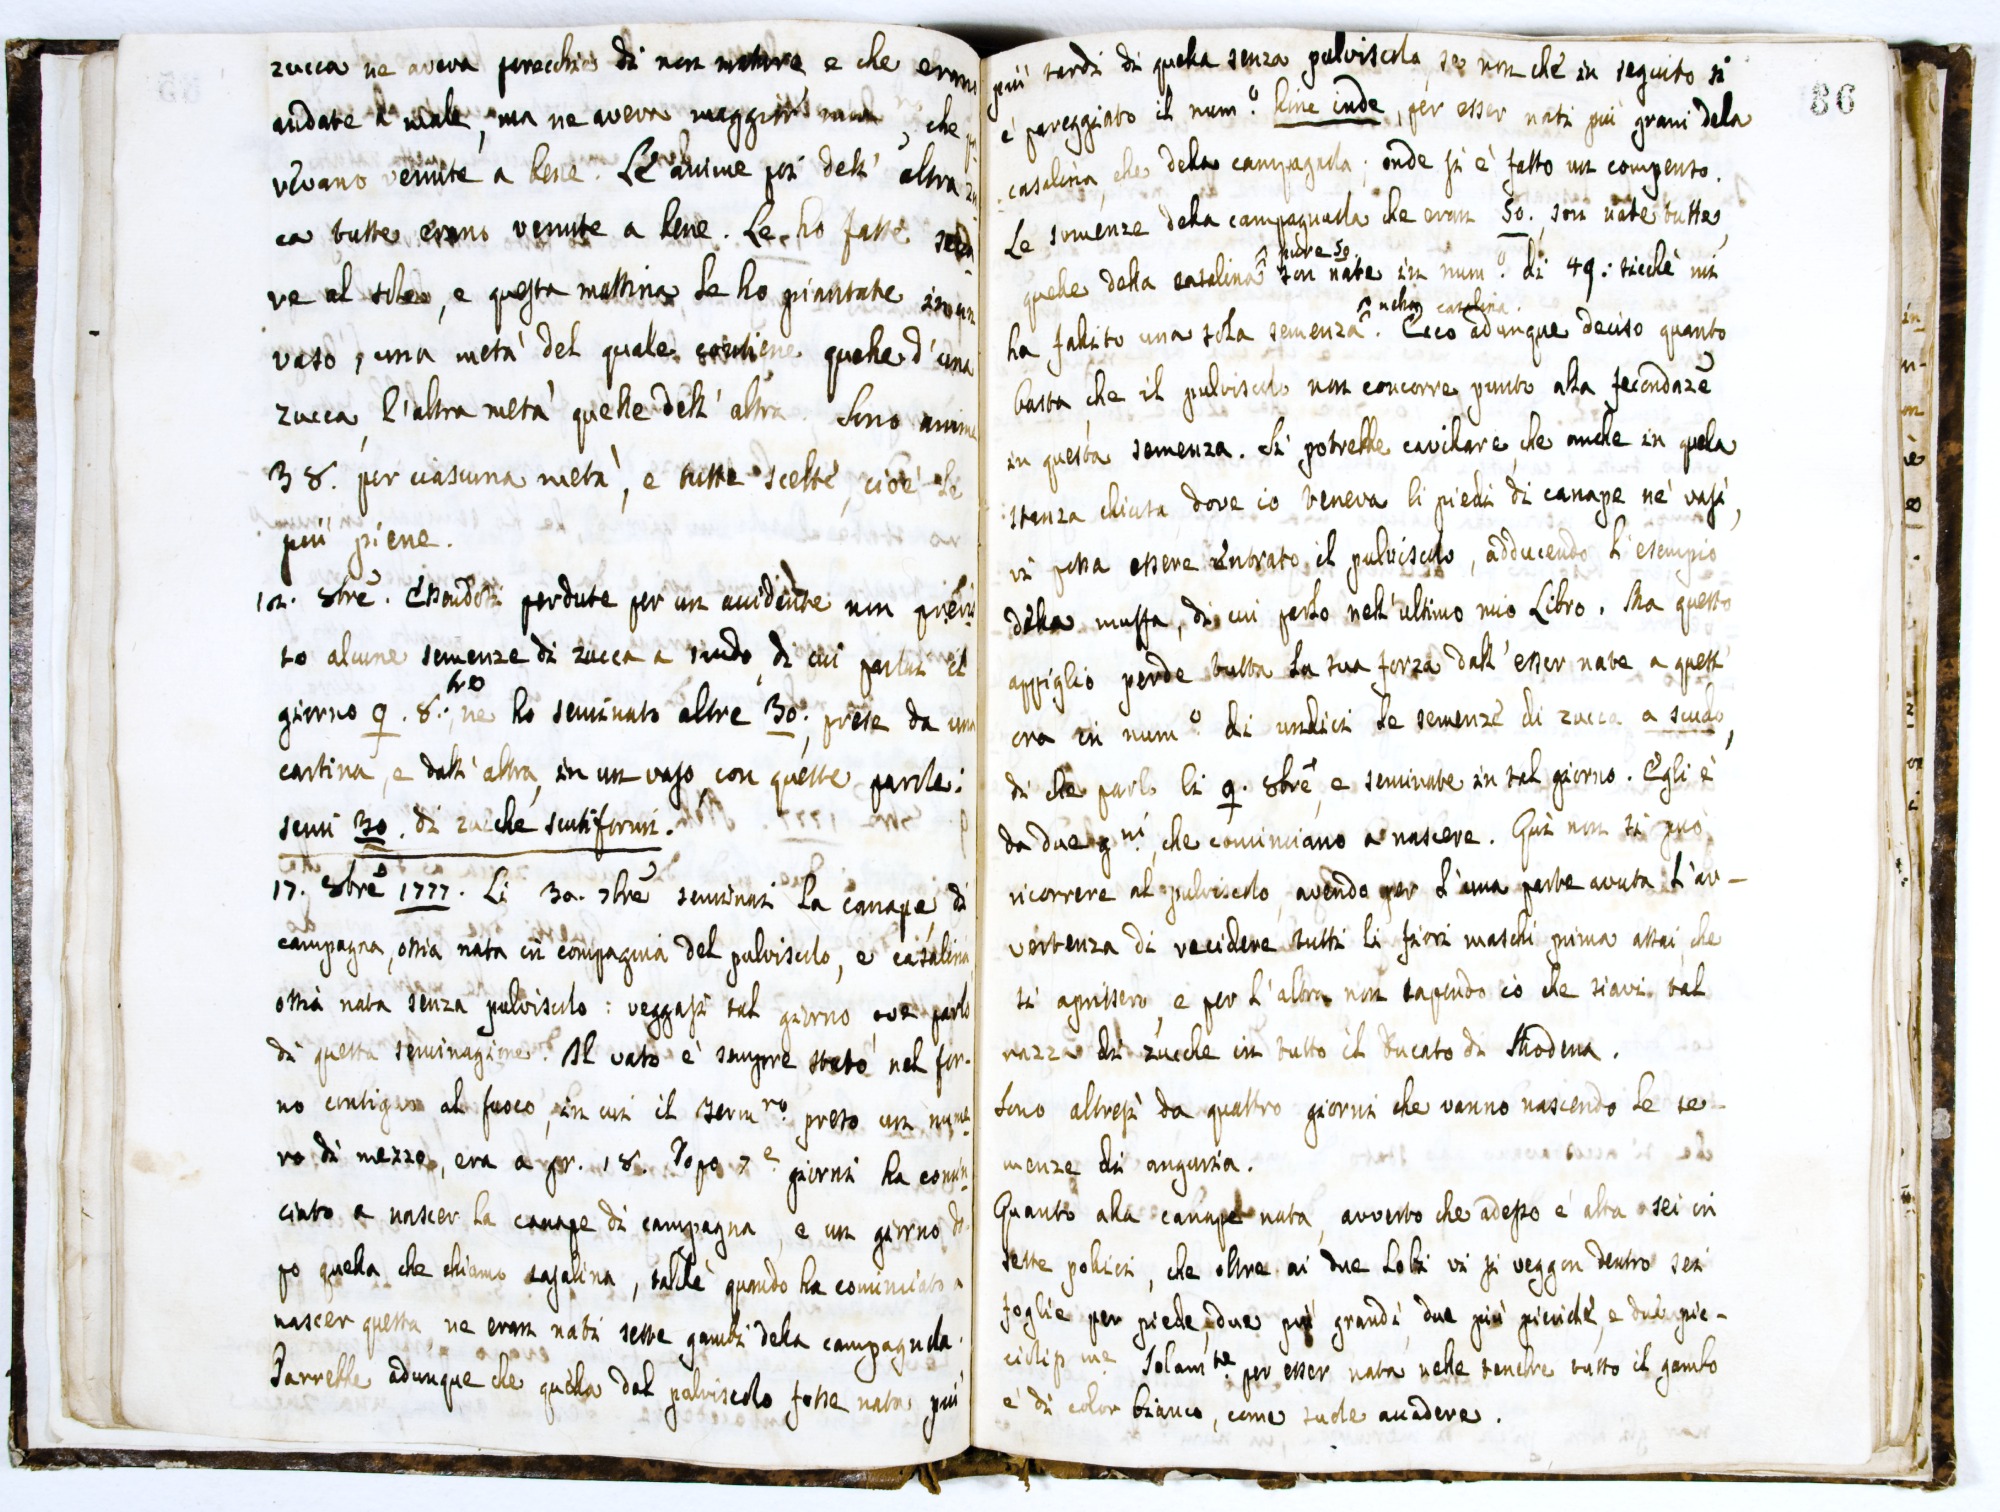 zucca ne aveva parecchie di non mature e che erano
andate a male, ma ne aveva maggior num, che
venute a bene. Le anime poi dell' altra zu-
ca tutte erano venute a bene. Le ho fatte secca-
re al sole, e questa mattina le ho piantate in un
vaso, una metà del quale contiene quelle d'una
zucca, l'altra metà quelle dell' altra. Sono anime
38. per ciascuna metà, e tutte scelte, cioè le
più piene.
12. 8bre. Essendosi perdute per un accidente non previs
to alcune semenze di zucca a scudo, di cui parlai il
giorno 9. 8bre, ne ho seminato altre 30. prese da una
cartina, e dall' altra, in un vaso con queste parole:
semi 30. di zucche scutiformi.
17. 8bre 1777. Li 30. 7bre seminai la canape di
campagna, ossia nata in compagnia del pulviscolo, e casalina
ossia nata senza pulviscolo: veggasi tal giorno ove parlo
di questa seminagione. Il vaso è sempre stato nel for-
no contiguo al fuoco, in cui il Term.ro preso un nume-
ro di mezzo, era a gr. 18. Dopo 7e giorni ha comin-
ciato a nascer la canape di campagna, e un giorno do-
po quella che chiamo casalina, talchè quando ha cominciato a
nascer questa ne eran nati sette gambi della campagnola.
Parrebbe adunque che quella dal pulviscolo fosse nata più
86
più tardi di quella senza pulviscolo, se non che in seguito si
è pareggiato il num.o hinc inde, per esser nati più grani dela
casalina, che della campagnola; onde si è fatto un compenso.
Le semenze della campagnuola che eran 50. son nate tutte,
quelle della casalina pure 50. son nate in num.o di 49: sicchè mi
ha fallito una sola semenza nella casalina. Ecco adunque deciso quanto
basta, che il pulviscolo non concorre punto alla fecondaze
in questa semenza. Si potrebbe cavillare, che anche in quela
stanza chiusa dove io teneva li piedi di canape ne' vasi,
vi possa essere entrato il pulviscolo, adducendo l'esempio
della muffa, di cui parlo nell'ultimo mio Libro. Ma questo
appiglio perde tutta la sua forza dall' esser nate a quest'
ora in num.o di undici le semenze di zucca a scudo,
di che parlo li 9. 8bre, e seminate in tal giorno. Egli è
da due gni, che cominciano a nascere. Qui non si può
ricorrere al pulviscolo, avendo per l'una parte avuta l'av-
vertenza di recidere tutti li fiori maschi prima assai, che
si aprissero, e per l'altra non sapendo io che siavi tal
razza di zucche in tutto il Ducato di Modena.
Sono altresì da quattro giorni che vanno nascendo le se-
menze di anguria.
Quanto alla canape nata, avverto che adesso è alta sei in
sette pollici, che oltre ai due Lobi vi si veggon dentro sei
foglie per piede, due più grandi, due più picciole, e due pic-
ciolis.me Solam.te per esser nata nelle tenebre tutto il gambo
è di color bianco, come suole accadere.